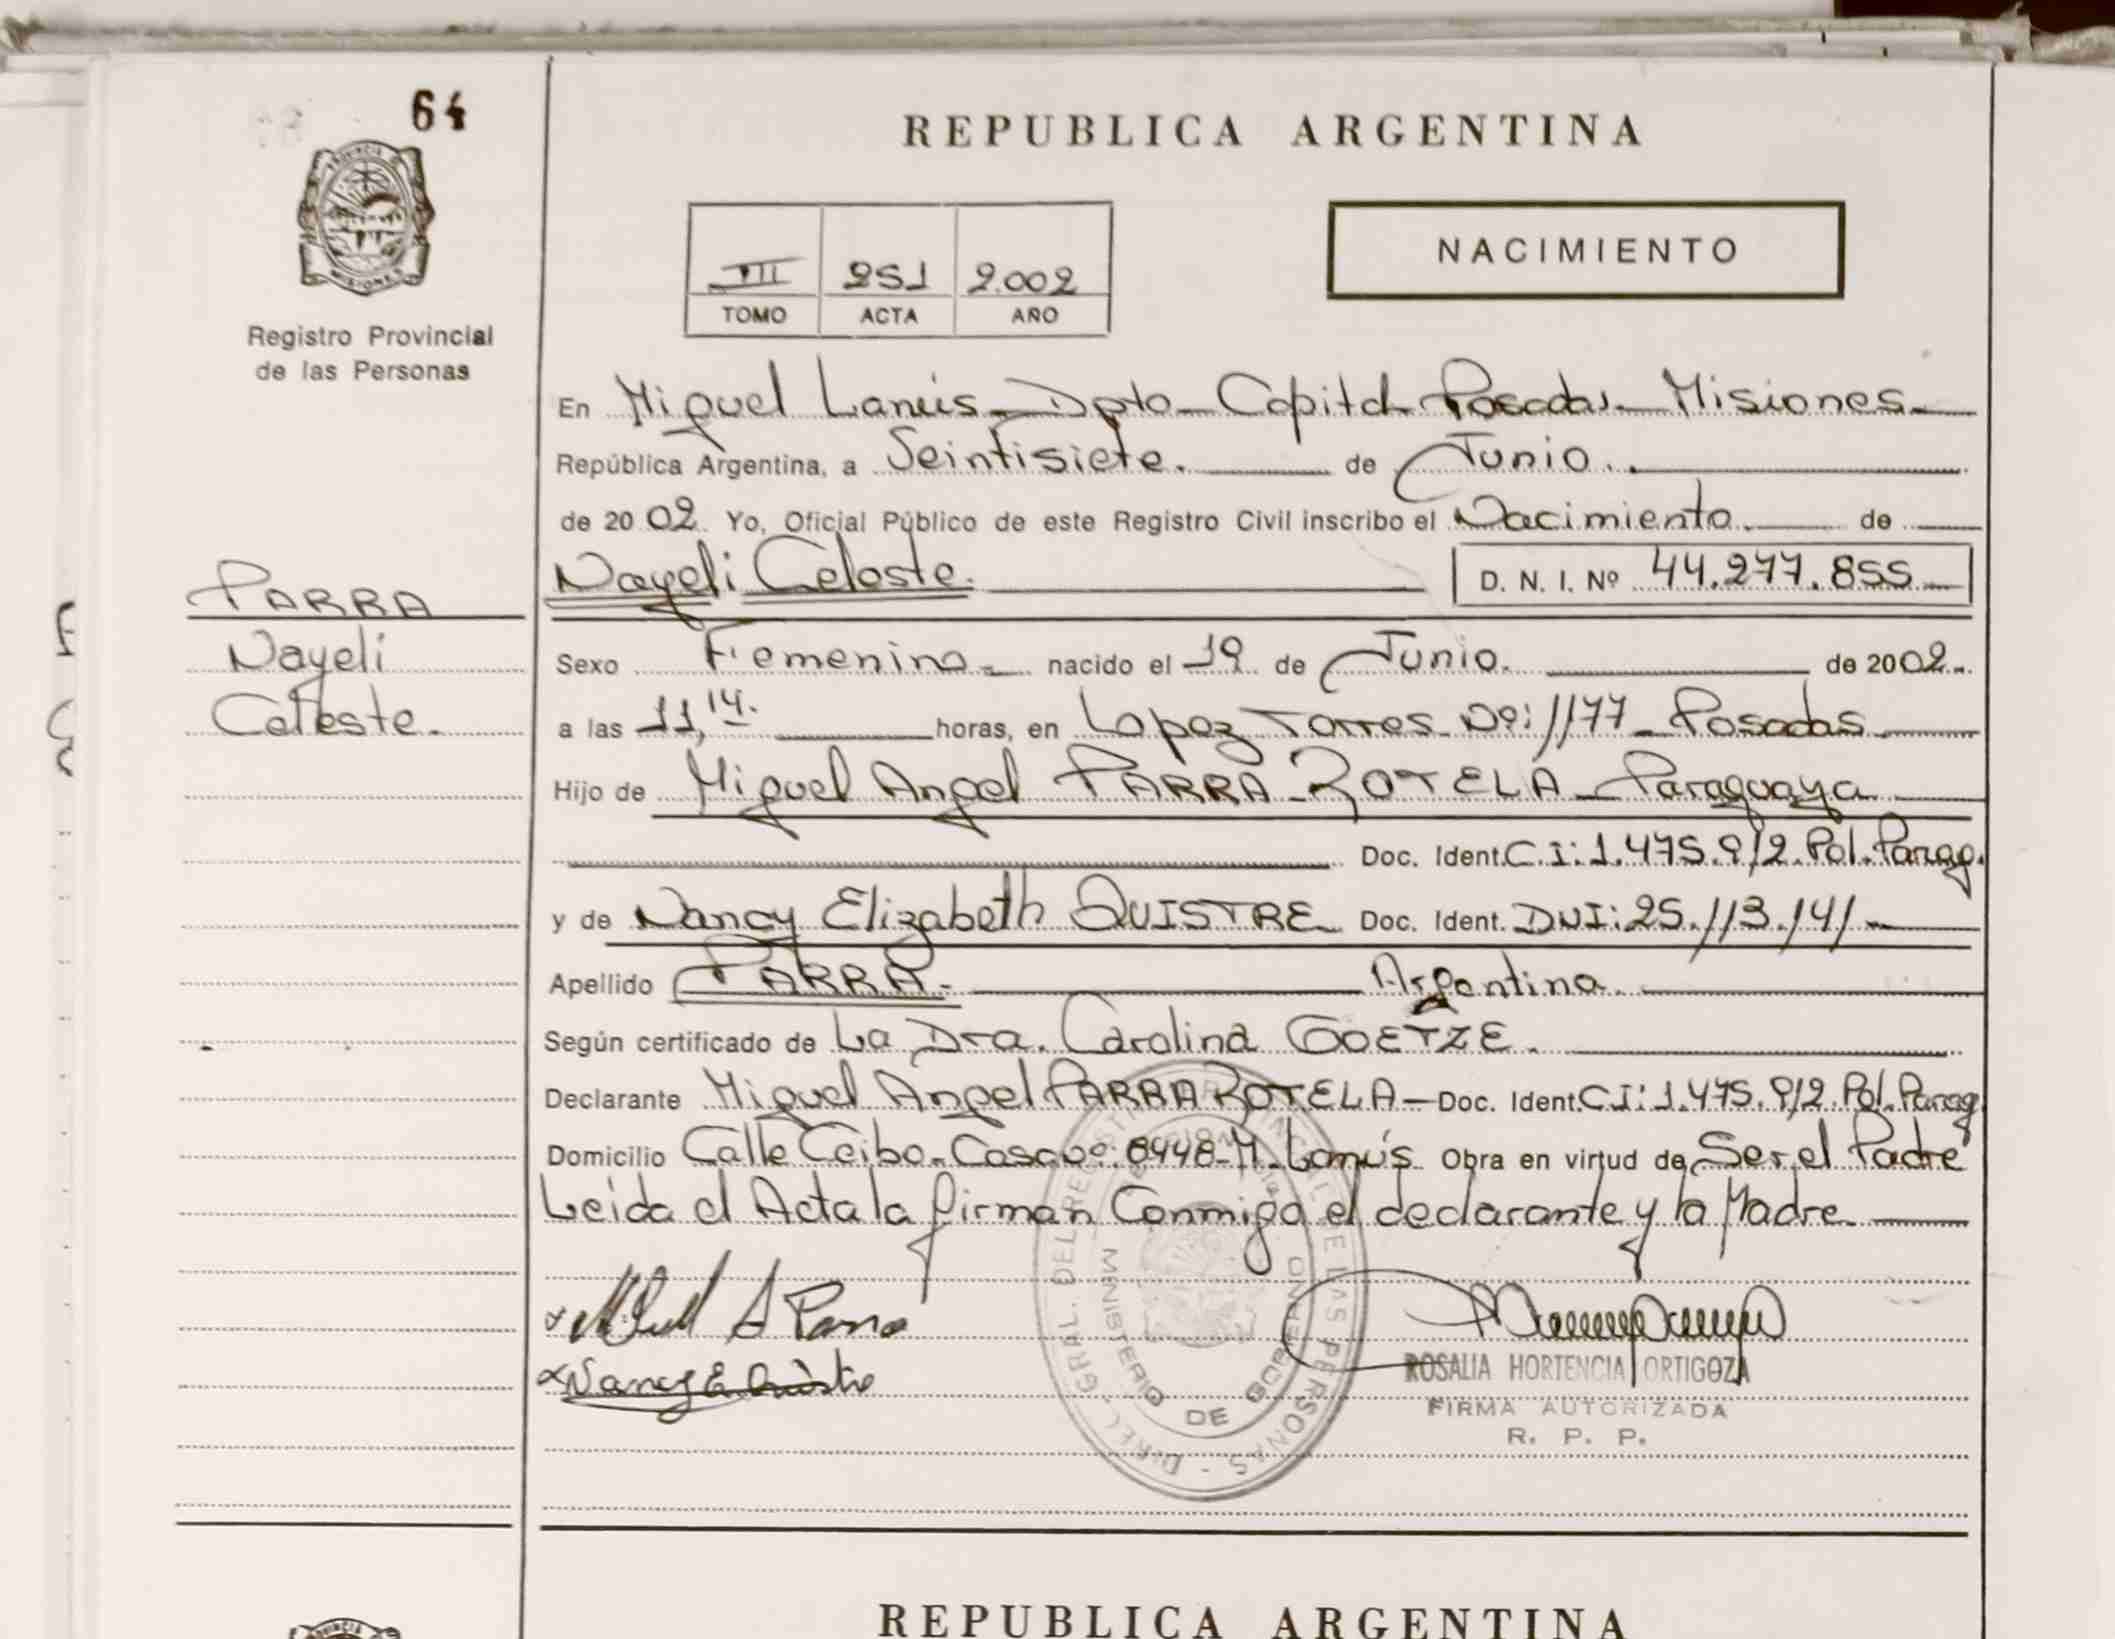 64
REPUBLICA ARGENTINA
PROVINCIA DE
MISIONES
Registro Provincial
de las Personas
VII 251 2.002
TOMO ACTA AÑO
NACIMIENTO
En Miguel Lanús Dpto Capital Posadas Misiones
República Argentina, a Veintisiete. de Junio.
de 2002 Yo, Oficial Público de este Registro Civil inscribo el Nacimiento de
PARRA
Nayeli
Celeste.
Nayeli Celeste. D. N. I. Nº 44.277.855
Sexo Femenino nacido el 19 de Junio. de 2002
a las 11,14. horas, en Lopez Torres Nº: 1177 Posadas
Hijo de Miguel Angel PARRA ROTELA Paraguaya
Doc. Ident. C.I: 1.475.912 Pol. Parag.
y de Nancy Elizabeth QUISTRE Doc. Ident. DNI: 25.113.141
Apellido PARRA. Argentina
Según certificado de La Dra. Carolina GOETZE.
Declarante Miguel Angel PARRA ROTELA Doc. Ident. CI: 1.475.912 Pol. Parag
Domicilio Calle Ceibo Casa Nº 8448 M. Lanús Obra en virtud de Ser el Padre
Leída el Acta la firman Conmigo el declarante y la Madre
Miguel A Parra
Nancy E. Quistre
DIREC. GRAL. DEL REGISTRO PROVINCIAL DE LAS PERSONAS
MINISTERIO DE GOBIERNO
ROSALIA HORTENCIA ORTIGOZA
FIRMA AUTORIZADA
R. P. P.
REPUBLICA ARGENTINA